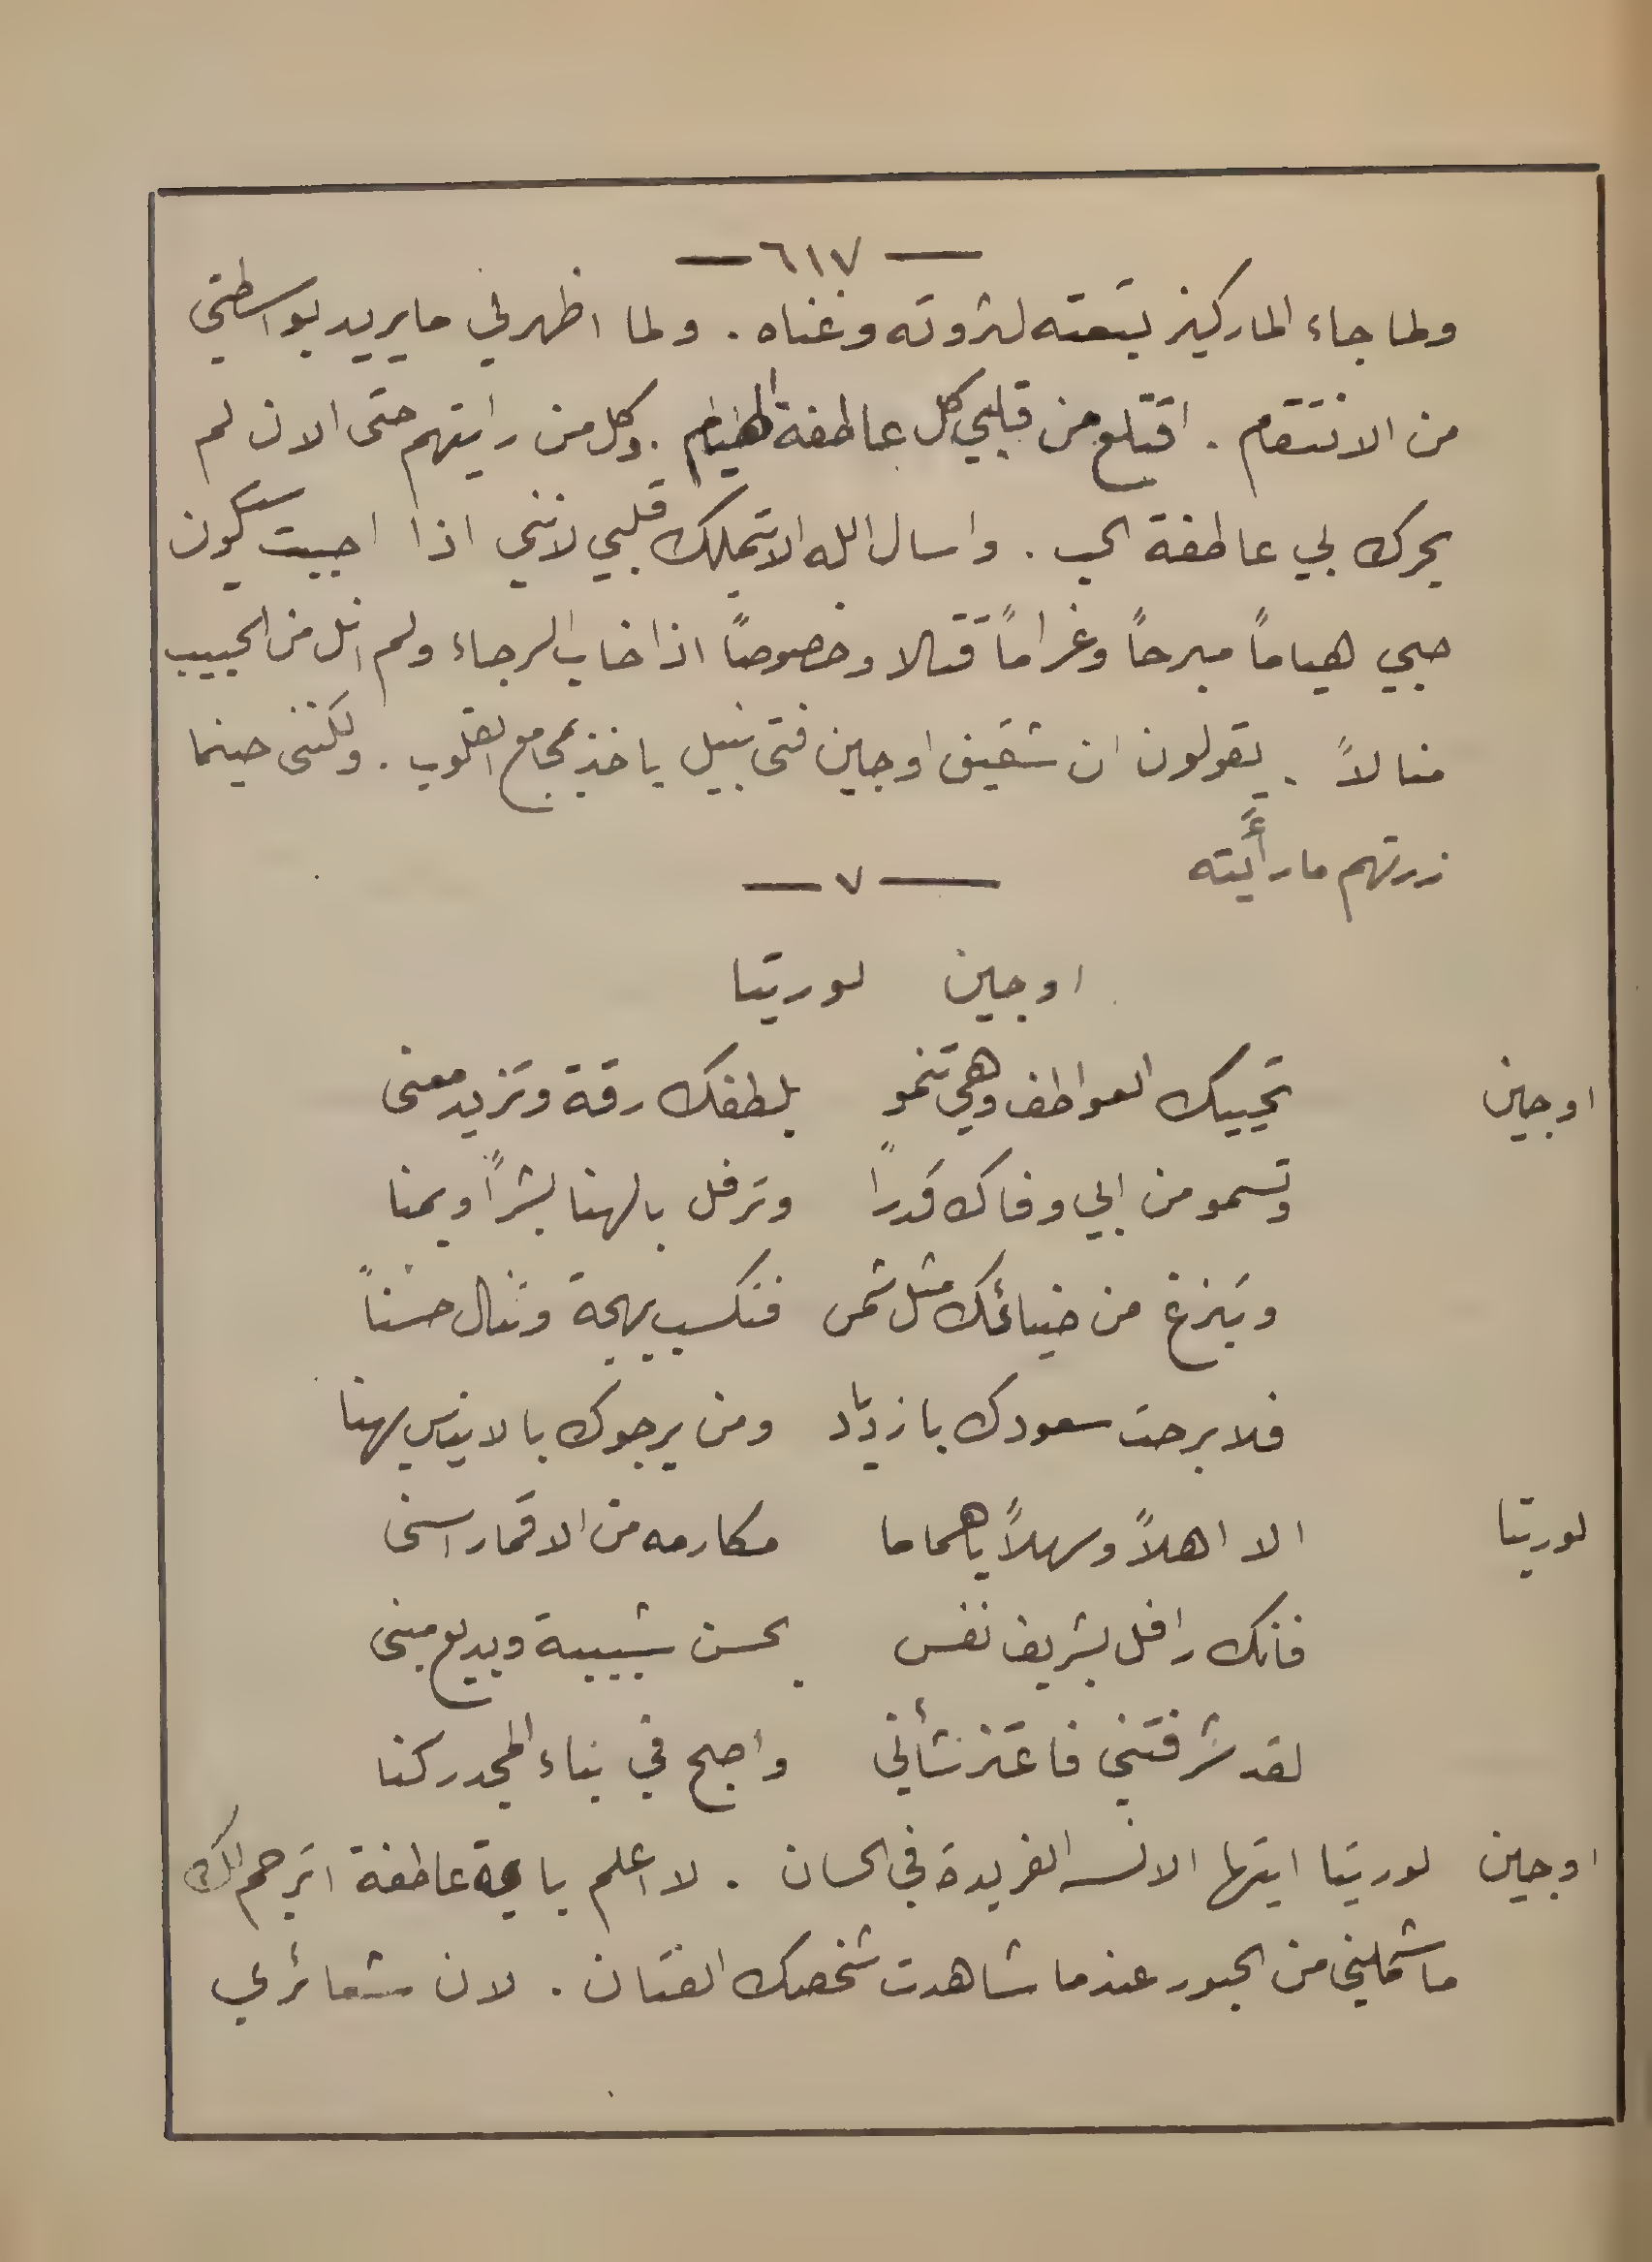 — ٦١٧ —
ولما جاء الماركيز تبعته لثروته وغناه . ولما اظهر لي ما يريد بواسطتي
من الانتقام . اقتلع من قلبي كل عاطفة الهيام . وكل من رايتهم حتى الان لم
يحرك لي عاطفة الحب . واسال الله الا يتملك قلبي لانني اذا احببت سيكون
حبي هياماً مبرحاً وغراماً قتالا وخصوصاً اذا خاب الرجاء ولم انل من الحبيب
منالاً . يقولون ان شقيق اوجين فتى نبيل ياخذ بمجامع القلوب . ولكنني حينما
زرتهم ما رأيته
— ٧ —
اوجين لوريتا
اوجين تحييك العواطف وهي تنمو بلطفك رقة وتزيد معنى
وتسمو من ابي وفاك قدراً وترفل بالهنا بشراً ويمنا
ويبزغ من ضيائك مثل شمس فنكسب بهجة وننال حسناً
فلا برحت سعودك بازدياد ومن يرجوك بالايناس يهنا
لوريتا الا اهلاً وسهلاً يا هماما مكارمه من الاقمار اسنى
فانك رافل بشريف نفس بحسن شبيبة وبديع مبنى
لقد شرفتني فاعتز شأني واصبح في بناء المجد ركنا
اوجين لوريتا ايتها الانسه الفريدة في الحسان . لا اعلم باية عاطفة اترجم لك
ما شملني من الحبور عندما شاهدت شخصك الفتان . لان شعائري